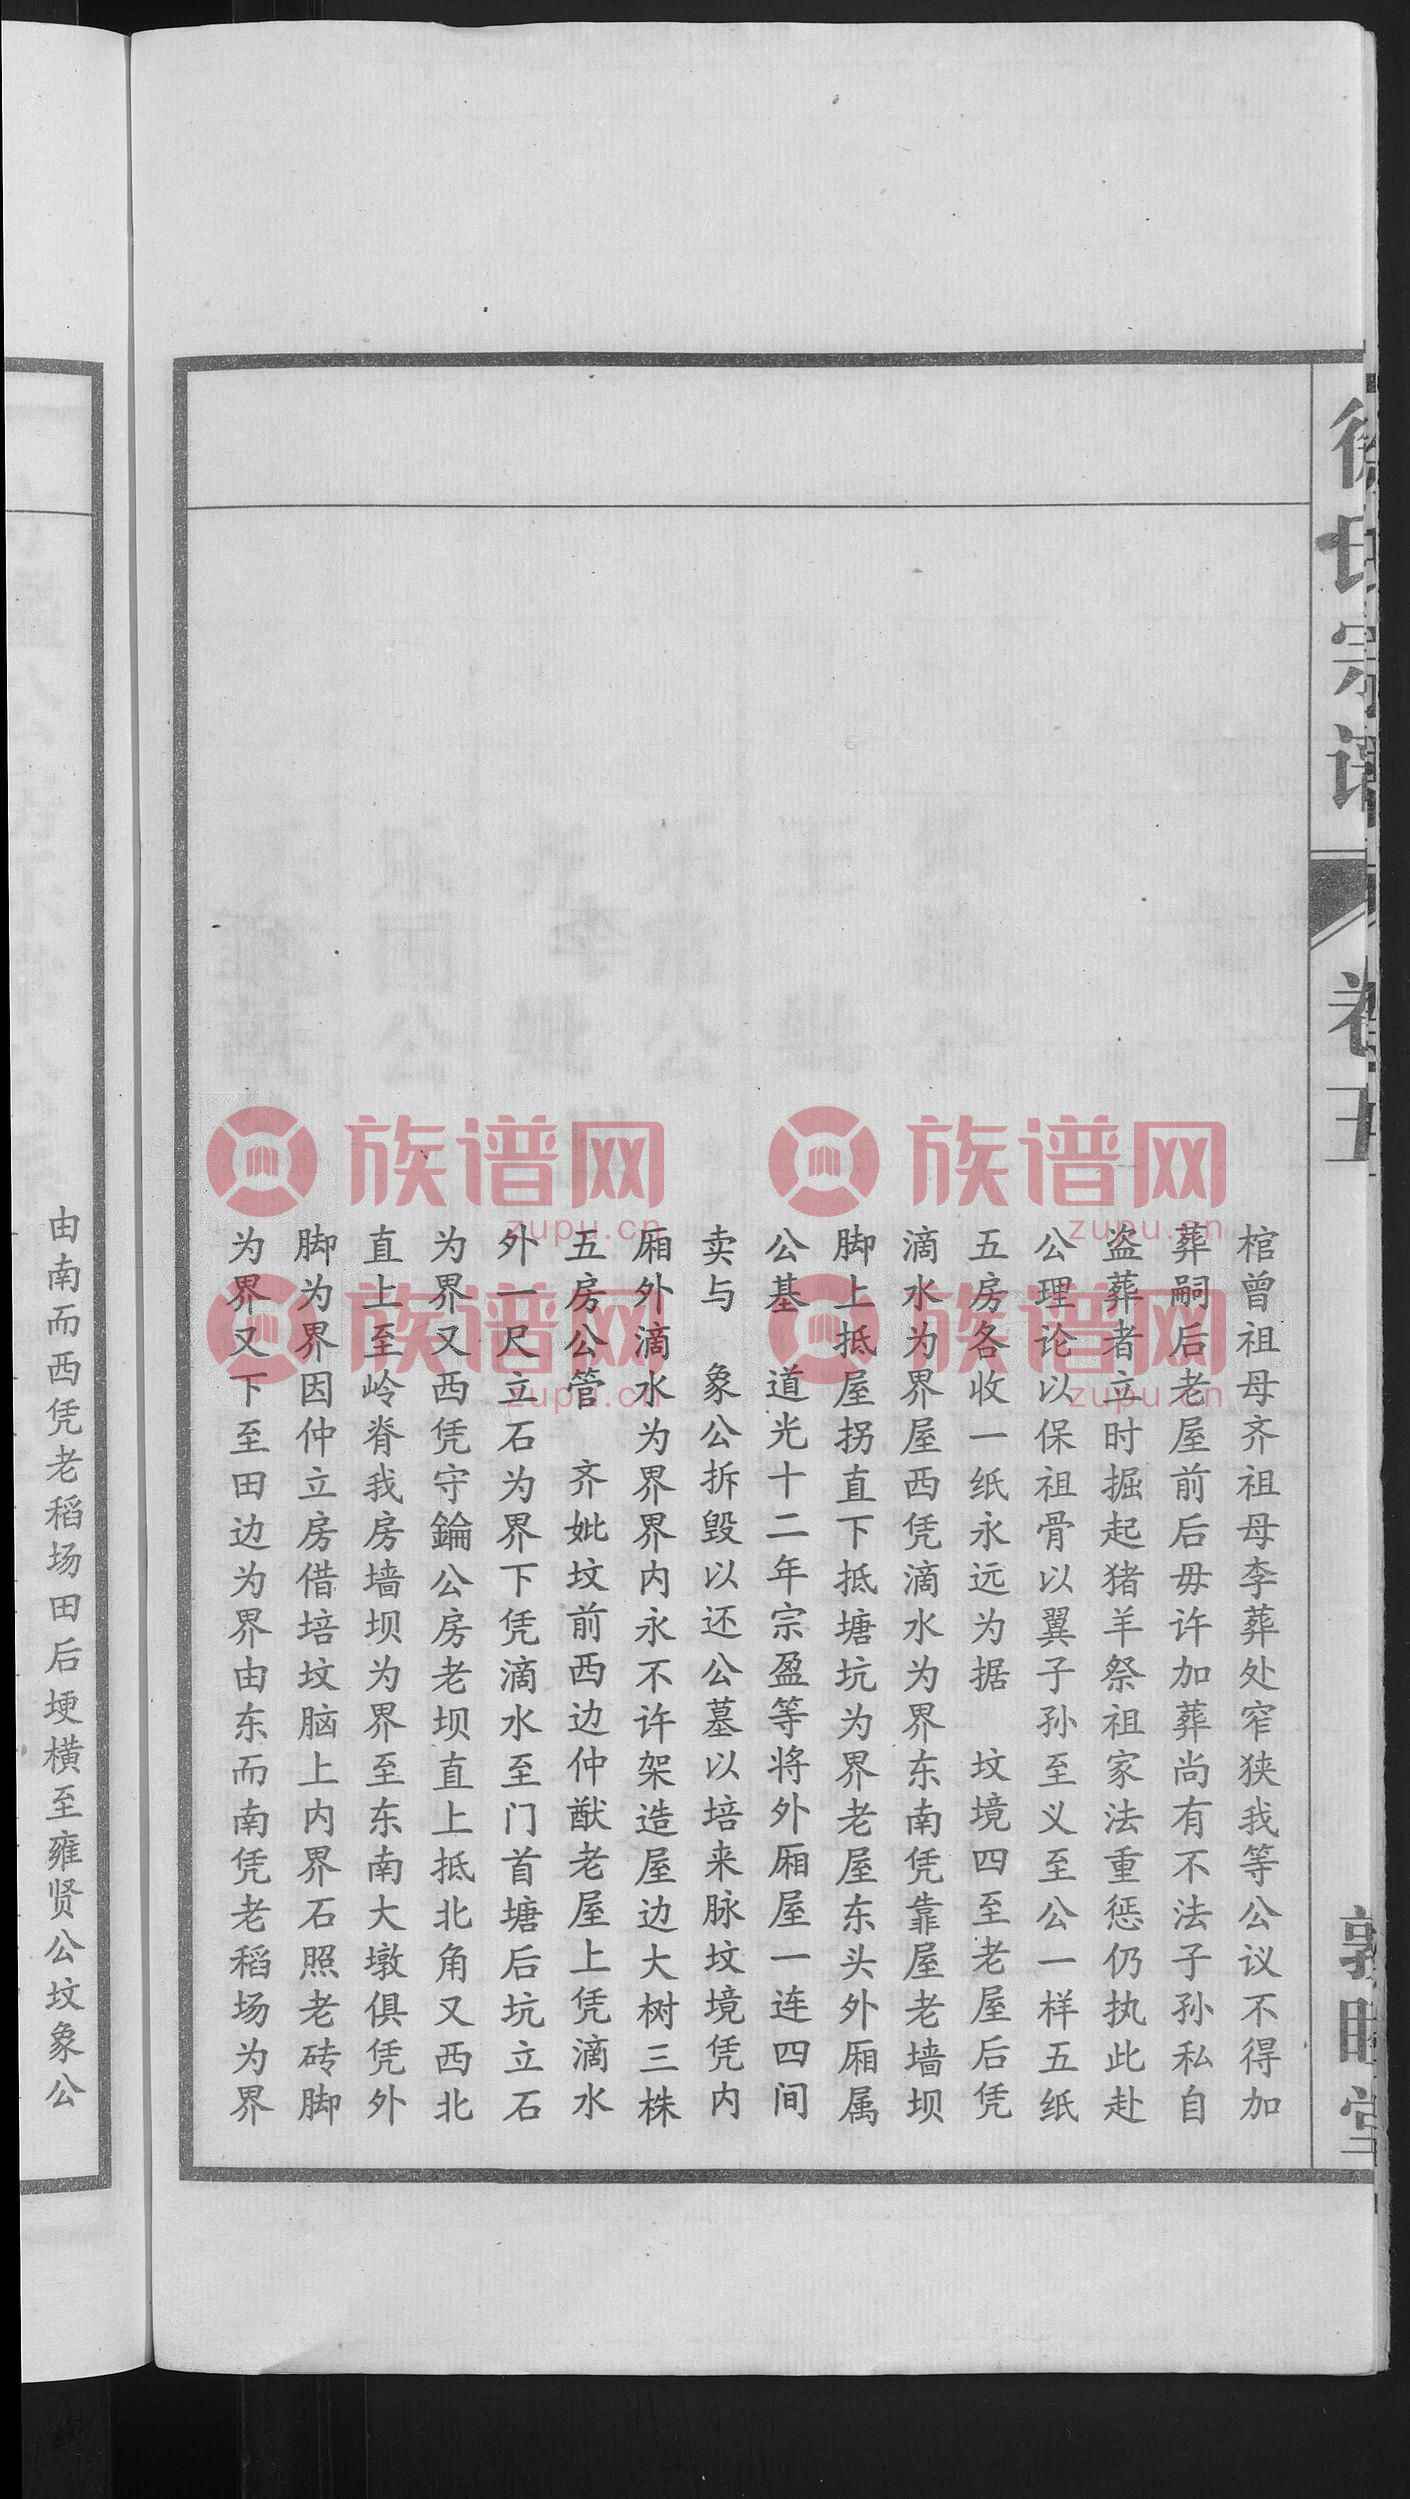 徐氏宗谱
卷五
敦睦堂
棺曾祖母齐祖母李葬处窄狭我等公议不得加
葬嗣后老屋前后毋许加葬尚有不法子孙私自
盗葬者立时掘起猪羊祭祖家法重惩仍执此赴
公理论以保祖骨以翼子孙至义至公一样五纸
五房各收一纸永远为据　坟境四至老屋后凭
滴水为界屋西凭滴水为界东南凭靠屋老墙坝
脚上抵屋拐直下抵塘坑为界老屋东头外厢属
公基　道光十二年宗盈等将外厢屋一连四间
卖与　象公拆毁以还公墓以培来脉坟境凭内
厢外滴水为界界内永不许架造屋边大树三株
五房公管　齐妣坟前西边仲猷老屋上凭滴水
外一尺立石为界下凭滴水至门首塘后坑立石
为界又西凭守錀公房老坝直上抵北角又西北
直上至岭脊我房墙坝为界至东南大墩俱凭外
脚为界因仲立房借培坟脑上内界石照老砖脚
为界又下至田边为界由东而南凭老稻场为界
由南而西凭老稻场田后埂横至雍贤公坟象公
族谱网
zupu.cn
族谱网
zupu.cn
族谱网
zupu.cn
族谱网
zupu.cn